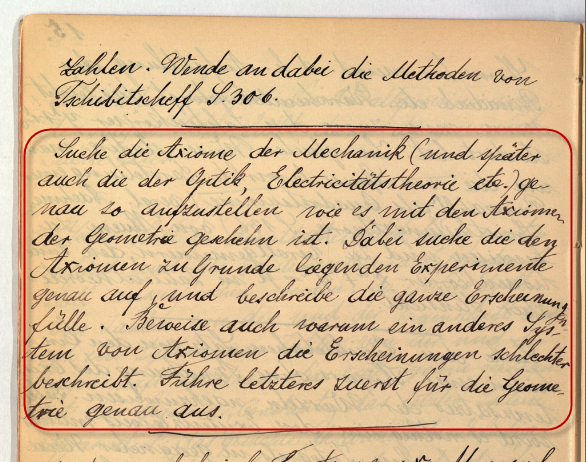 Zahlen. Wende an dabei die Methoden von
Tschibitscheff S. 306.
Suche die Axiome der Mechanik (und später
auch die der Optik, Electricitätstheorie etc.) ge-
nau so aufzustellen wie es mit den Axiomen
der Geometrie geschehn ist. Dabei suche die den
Axiomen zu Grunde liegenden Experimente
genau auf, und beschreibe die ganze Erscheinungs
fülle. Beweise auch warum ein anderes Sys-
tem von Axiomen die Erscheinungen schlechter
beschreibt. Führe letzteres zuerst für die Geome-
trie genau aus.